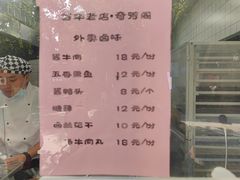 百年老店·奇芳阁
外卖卤味
酱牛肉 18元/份
五香熏鱼 12元/份
酱鸭头 8元/个
糖藕 12元/份
豆干 10元/份
牛肉丸 12元/份